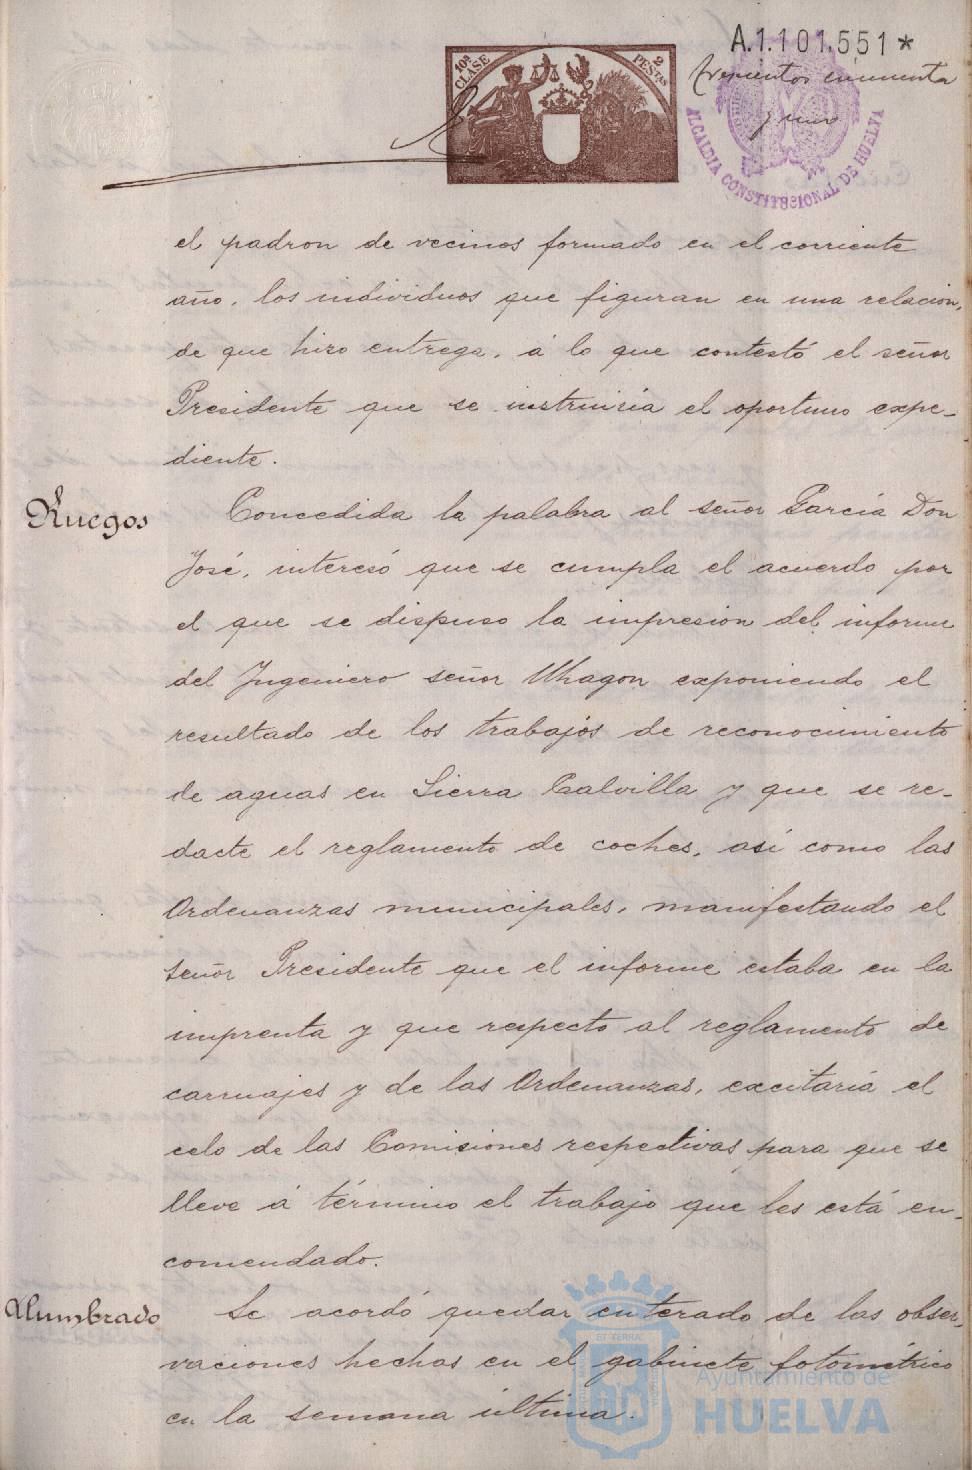 A.1.101,551*
trescientos cincuenta
y uno
10ª CLASE
2 PESTAS
ALCALDIA CONSTITUCIONAL DE HUELVA
el padron de vecinos formado en el corriente
año, los individuos que figuran en una relacion,
de que hizo entrega, á lo que contestó el señor
Presidente que se instruiria el oportuno expe-
diente.
Ruegos
Concedida la palabra al señor Garcia Don
José, interesó que se cumpla el acuerdo por
el que se dispuso la impresion del informe
del Ingeniero señor Uhagon exponiendo el
resultado de los trabajos de reconocimiento
de aguas en Sierra Calvilla y que se re-
dacte el reglamento de coches, así como las
Ordenanzas municipales, manifestando el
señor Presidente que el informe estaba en la
imprenta y que respecto al reglamento de
carruajes y de las Ordenanzas, excitaria el
celo de las Comisiones respectivas para que se
lleve á término el trabajo que les está en-
comendado.
Alumbrado
Se acordó quedar enterado de las obser-
vaciones hechas en el gabinete fotométrico
en la semana última.
ET TERRÆ
Ayuntamiento de
HUELVA